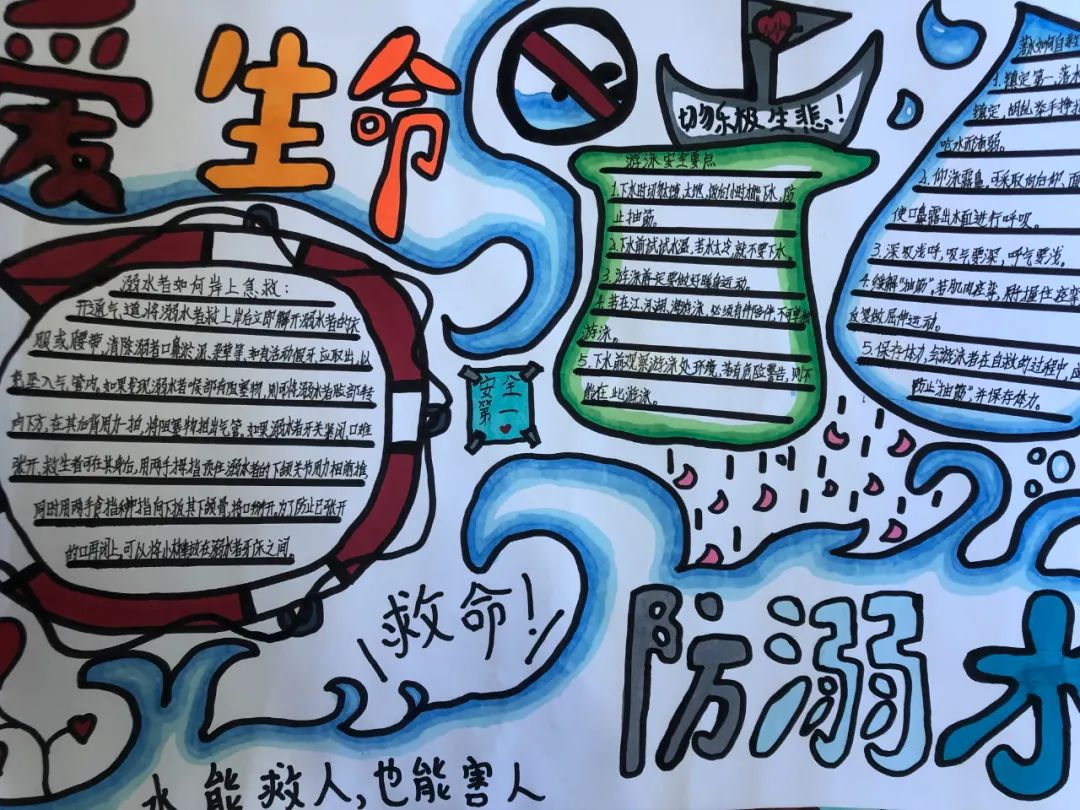 爱生命
切勿乐极生悲！
溺水者如何岸上急救：
开通气道，将溺水者救上岸后立即解开溺水者的衣
服或腰带，清除溺者口鼻淤泥、杂草等，如有活动假牙应取出，以
坠入气管内，如果发现溺水者喉部有阻塞物，则可将溺水者脸部转
向下方，在其后背用力一拍，将阻塞物拍出气管，如果溺水者牙关紧闭，口难
张开，救生者可在其身后，用两手拇指顶住溺水者的下颌关节用力相前推，
同时用两手食指和中指向下扳其下颌骨，将口掰开，为了防止已张开
的口再闭上，可以将小木棒放在溺水者牙床之间。
安全
第一
游泳安全要点
1.下水时切勿太饿、太饱，饭后小时才能下水，防
止抽筋。
2.下水前试试水温，若水太冷，就不要下水
3.游泳前定要做好暖身运动。
4.若在江、河、湖、海游泳，必须有伴陪伴，不可单独
游泳。
5.下水前观察游泳处环境，若有危险警告，则不
能在此游泳。
落水如何自救
1.镇定第一，落水
镇定，胡乱举手挣扎
呛水而淹弱。
2.仰泳露鼻，可采取向后仰、面
使口鼻露出水面进行呼吸。
3.深吸浅呼，吸气要深，呼气要浅。
4.缓解“抽筋”，若肌肉痉挛，将握住痉挛
反复做屈伸运动。
5.保存体力，会游泳者在自救的过程中，应
防止“抽筋”并保存体力。
救命！
防溺水
水能救人，也能害人